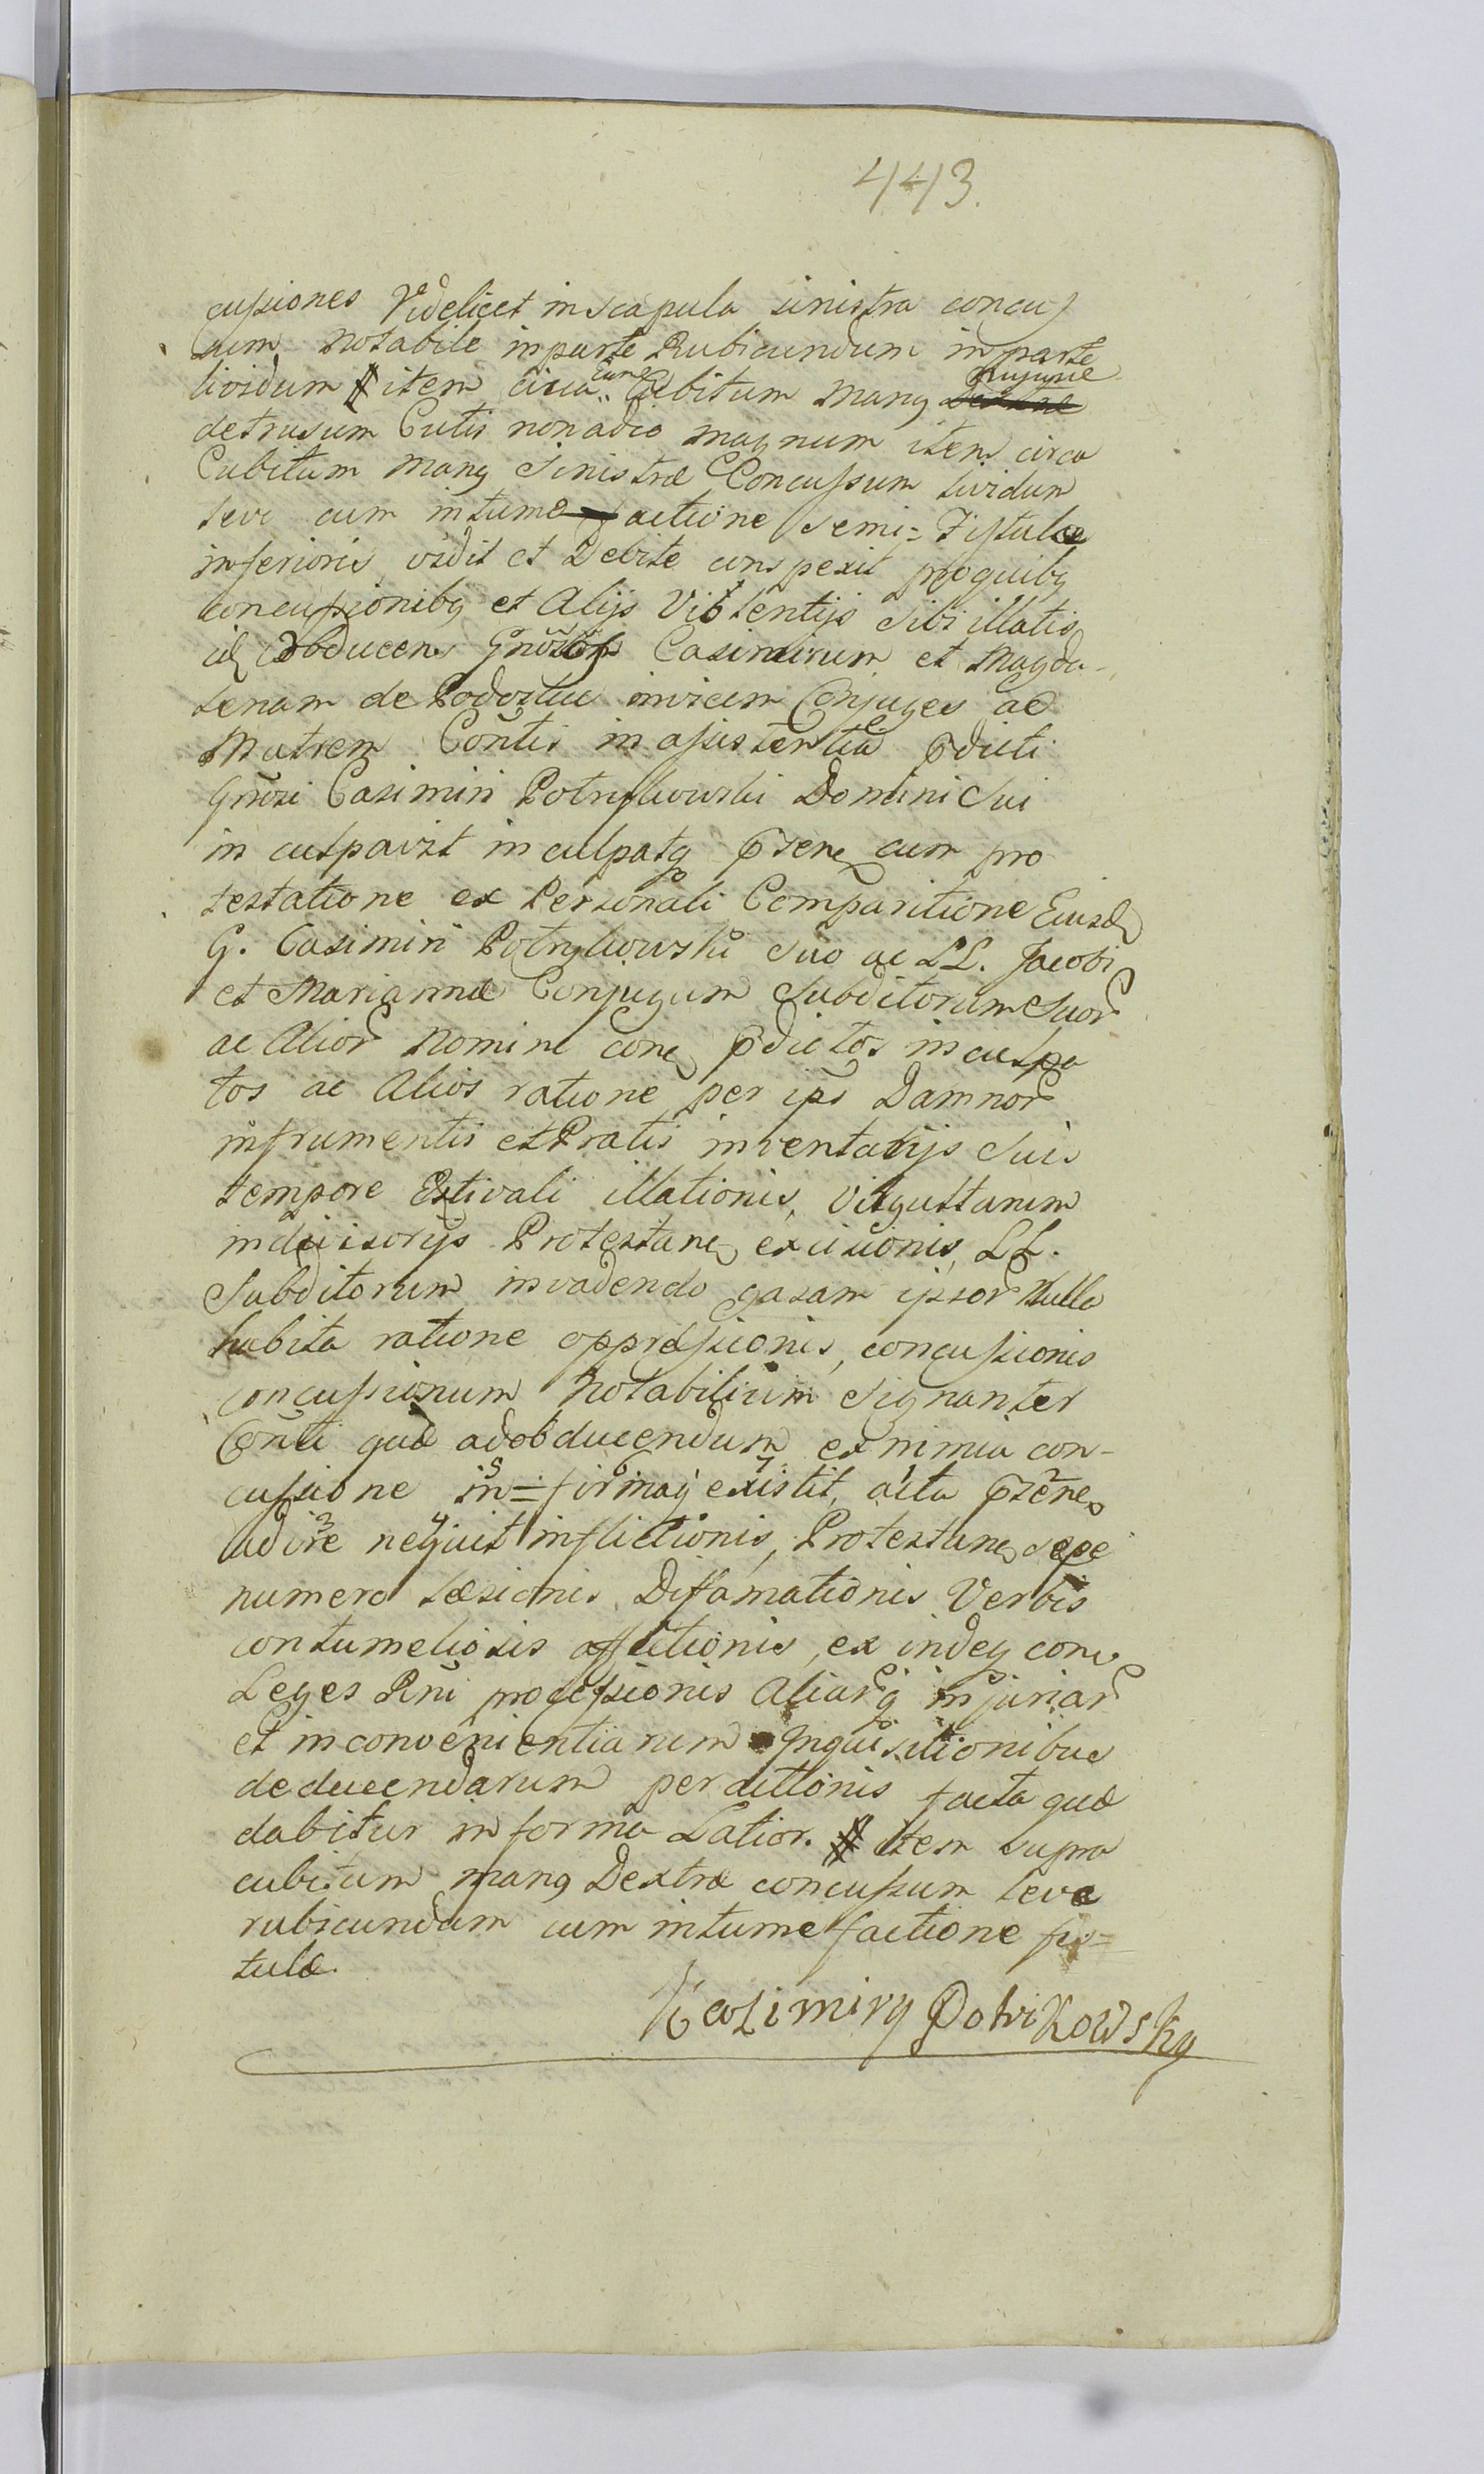 443.
cussiones Videlicet in scapula sinistra concus
sum notabile in parte Rubicundum in parte
lividum # item circa Eund. Cubitum manq hujusce
detrusum Cutis non adeo magnum item circa
Cubitum manq Sinistræ Concussum lividum
leve cum intumefactione semi=Fistulæ
inferioris vidit et Debite conspexit pro quibq
concussionibq et Alijs Violentijs sibi illatis
id obducens Gnosos Casimirum et Magda-
lenam de invicem Conjuges ac
Matrem Contis in assistentia pdicti
Gnosi Casimiri Potrykowski Domini Sui
inculpavit inculpatq psens cum pro
testatione ex Personali Comparitione Eiusd
G. Casimiri Potrykowski suo ac LL. Jacobi
et Mariannæ Conjugum Subditorum Suor
ac Alior nomine con pdictos inculpa
tos ac Alios ratione per ips Damnor
in frumentis et Pratis inventarijs Suis
tempore Estivali illationis, Virgultarum
in divisorijs Protestan excisionis, LL.
Subditorum invadendo casam ipsor Nulla
habita ratione oppressionis, concussionis
concussionum Notabilium signanter
Conti quæ ad obducendum ex nimia con-
cussione in=firmaq existit, acta psen
adire nequit inflictionis, Protestan sepe
numero læsionis Diffamationis Verbis
contumeliosis affectionis, ex indeq con
Leges Rni processionis Aliarq injuriar
et inconvenientiarum Inquisitionibus
deducendarum perditionis facta quæ
dabitur in forma Latior. # Item supra
cubitum manq Dextræ concussum leve
rubicundum cum intumefactione fis=
tulæ.
Kazimirq Potrikowsky